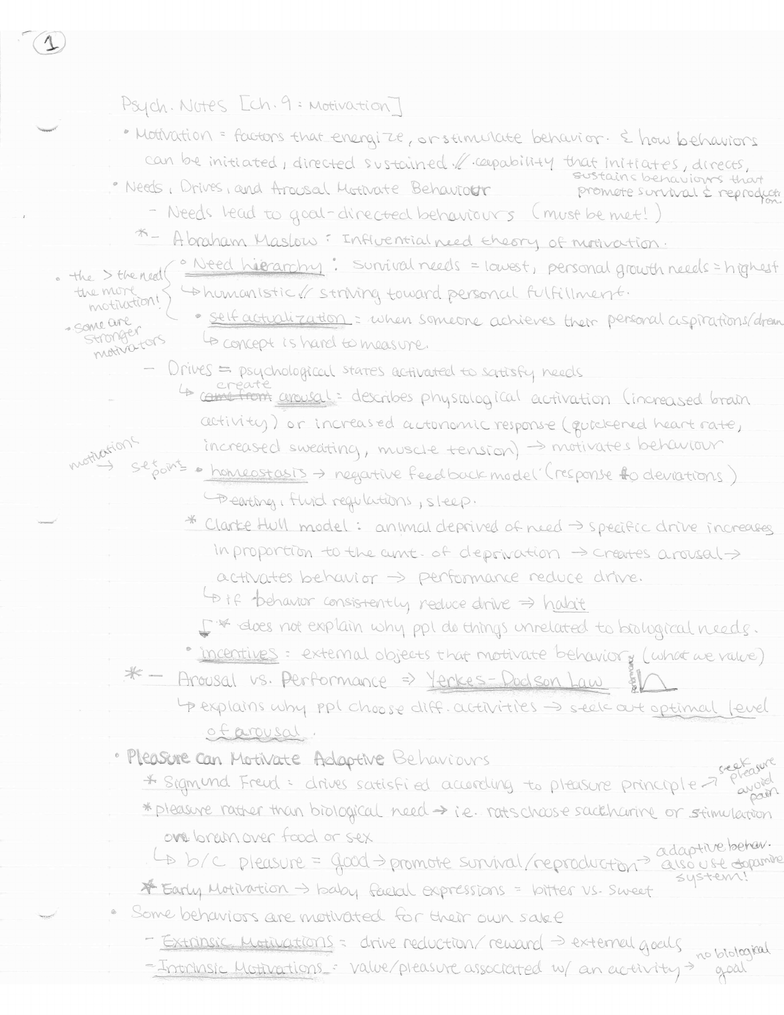 1
Psych. Notes [Ch. 9 : Motivation]
• Motivation = factors that energize, or stimulate behavior. & how behaviors
can be initiated, directed sustained // capability that initiates, directs,
sustains behaviours that
promote survival & reproduction
• Needs, Drives, and Arousal Motivate Behaviour
- Needs lead to goal-directed behaviours (must be met!)
*- Abraham Maslow : Influential need theory of motivation.
• Need hierarchy : survival needs = lowest, personal growth needs = highest
• the > the need
the more
motivation!
• some are
stronger
motivators
↳ humanistic // striving toward personal fulfillment.
• self actualization : when someone achieves their personal aspirations/dream
↳ concept is hard to measure.
- Drives = psychological states activated to satisfy needs
create
↳ came from arousal : describes physiological activation (increased brain
activity) or increased autonomic response (quickened heart rate,
increased sweating, muscle tension) → motivates behaviour
motivations
→ set
points = • homeostasis → negative feedback model (response to deviations)
↳ eating, fluid regulations, sleep.
* Clarke Hull model : animal deprived of need → specific drive increases
in proportion to the amt. of deprivation → creates arousal →
activates behavior → performance reduce drive.
↳ if behavior consistently reduce drive ⇒ habit
* does not explain why ppl do things unrelated to biological needs.
• incentives : external objects that motivate behavior (what we value)
* - Arousal vs. Performance ⇒ Yerkes-Dodson Law
↳ explains why ppl choose diff. activities → seek out optimal level
of arousal.
• Pleasure can Motivate Adaptive Behaviours
* Sigmund Freud : drives satisfied according to pleasure principle → seek
pleasure
avoid
pain
* pleasure rather than biological need → i.e. rats choose saccharine or stimulation
on brain over food or sex
↳ b/c pleasure = good → promote survival/reproduction → adaptive behav.
also use dopamine
system!
* Early Motivation → baby facial expressions = bitter vs. sweet
• Some behaviors are motivated for their own sake
- Extrinsic Motivations = drive reduction/reward → external goals
- Intrinsic Motivations : value/pleasure associated w/ an activity → no biological
goal